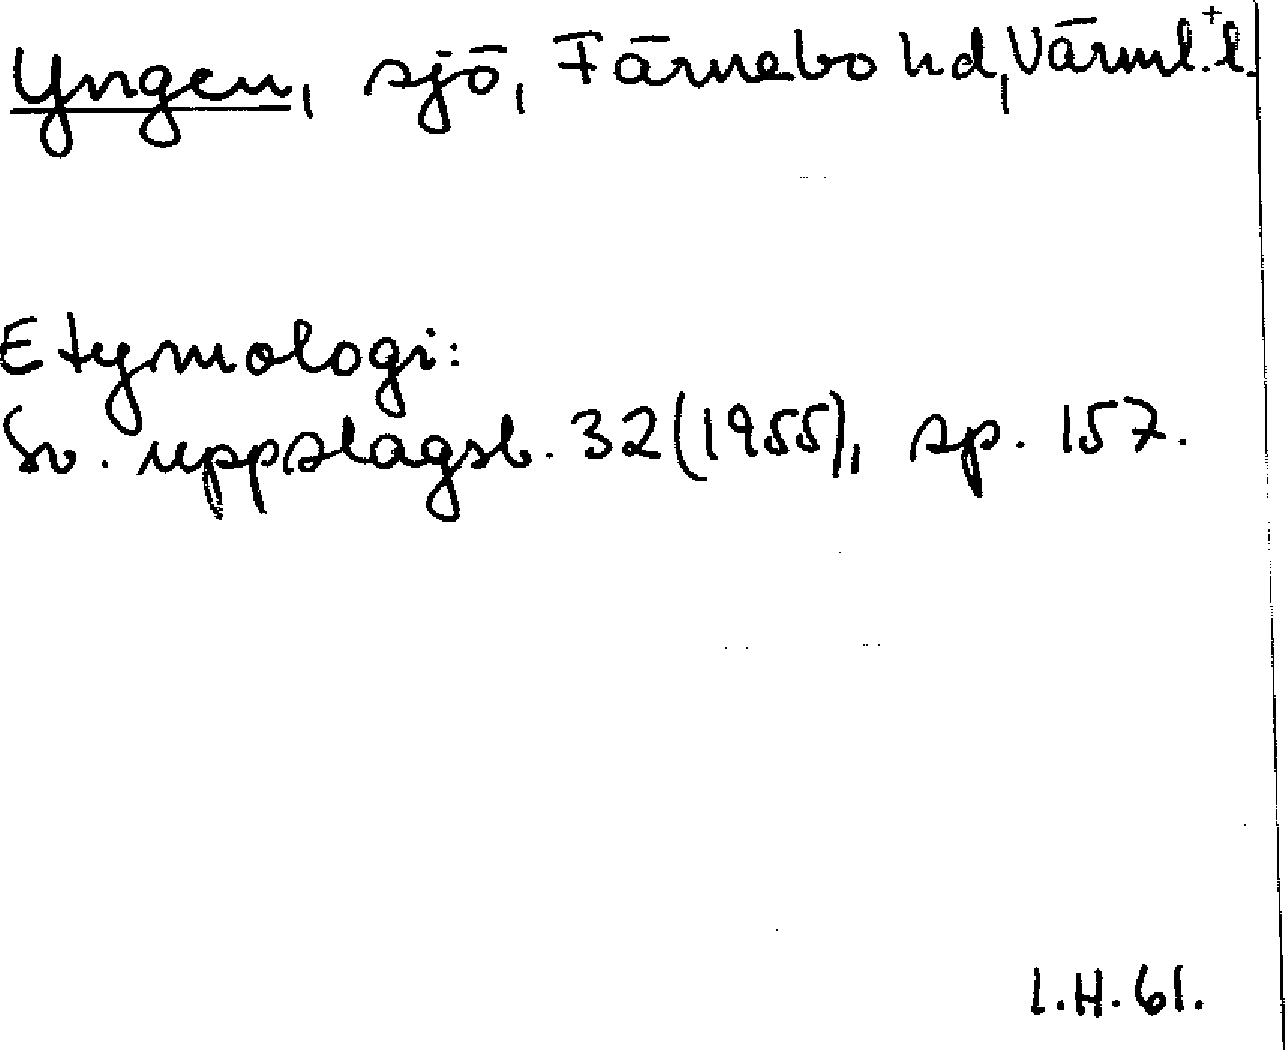 Yngen, sjö, Färnebo hd, Värml. l.
Etymologi:
Sv. uppslagsb. 32 (1955), sp. 157.
L.H. 61.